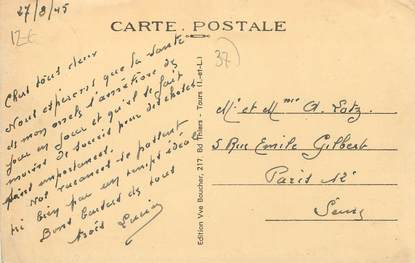 27/8/45
12E
CARTE POSTALE
37
Chers tous deux
Nous espérons que la santé
de mon oncle s'améliore de
jour en jour et qu'il se fait
moins de soucis pour des choses
sans importance.
Nos vacances se passent
ici bien par un temps idéal
Bons baisers de tous
trois Lucien
Edition Vve Boucher, 217, Bd Thiers - Tours (I.-et-L.)
Mr et Mme A. Lotz
5 Rue Emile Gilbert
Paris 12e
Seine